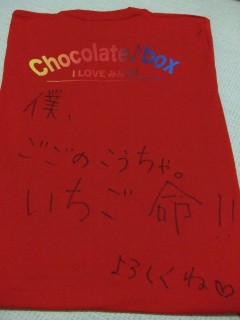 Chocolate♪box
I LOVE みんな
僕、
ごごのこうちゃ。
いちご命!!
よろしくね♡